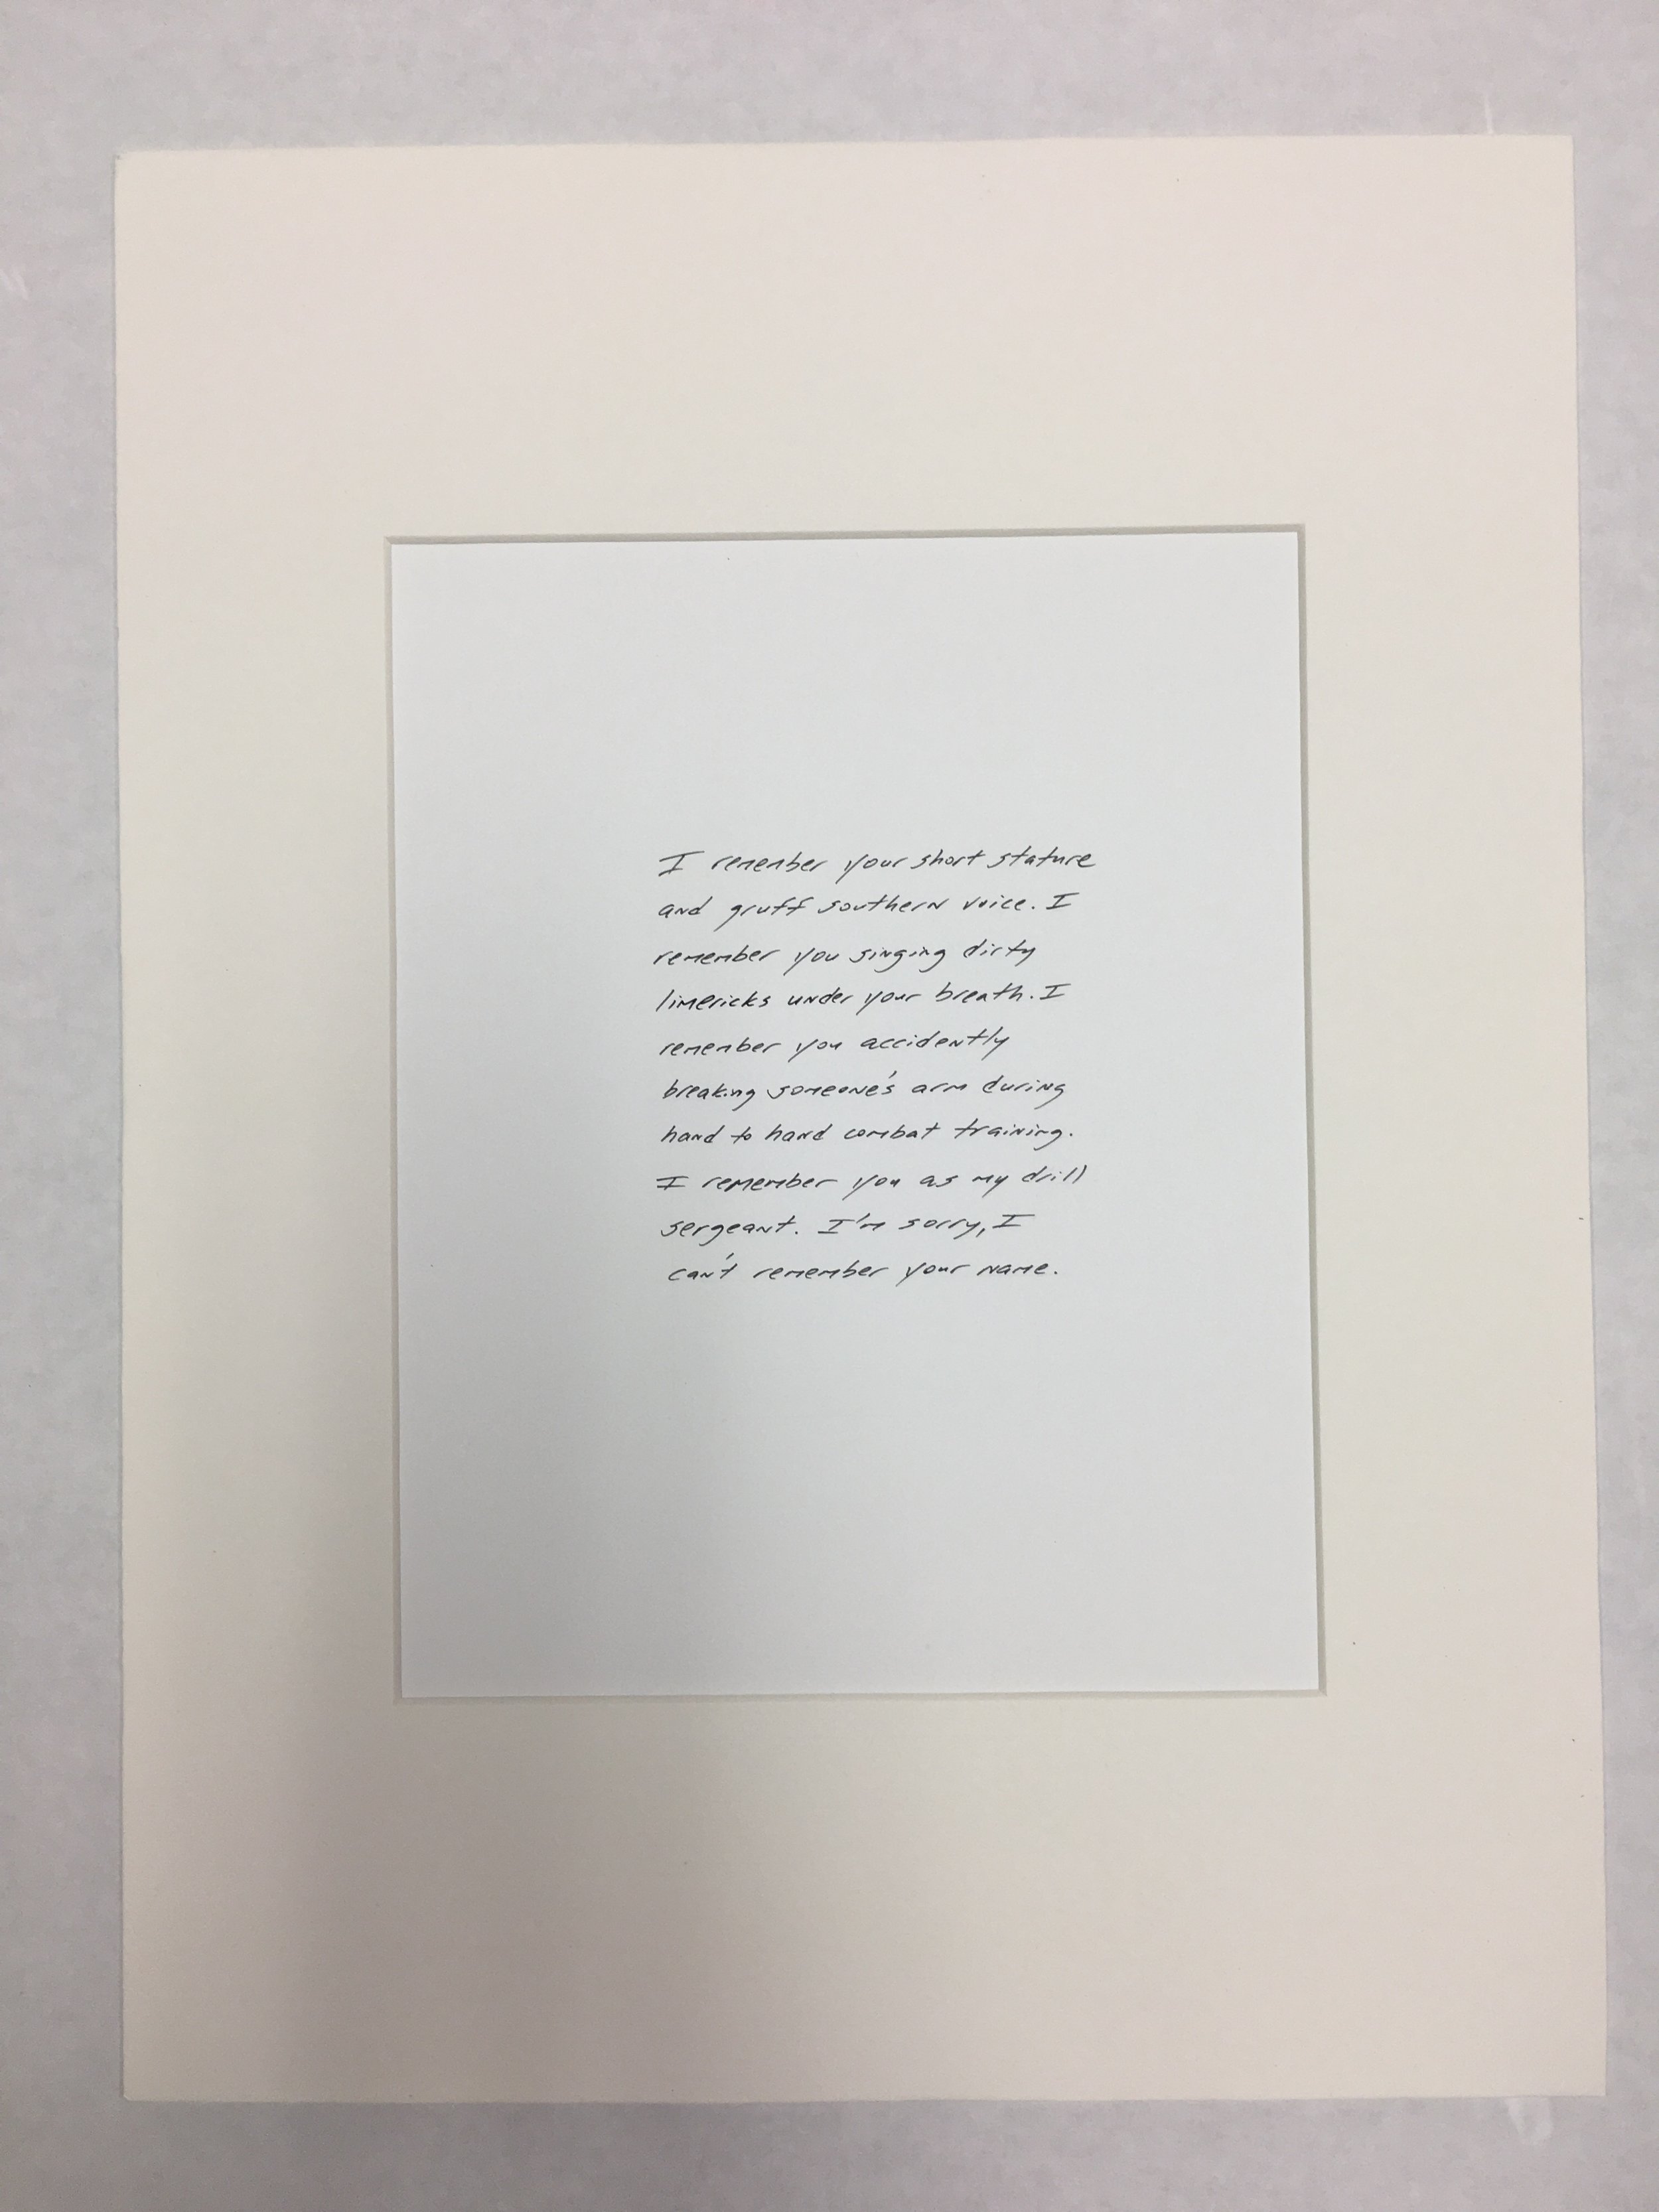 I remember your short stature
and gruff southern voice. I
remember you singing dirty
limericks under your breath. I
remember you accidently
breaking someone's arm during
hand to hand combat training.
I remember you as my drill
sergeant. I'm sorry, I
can't remember your name.